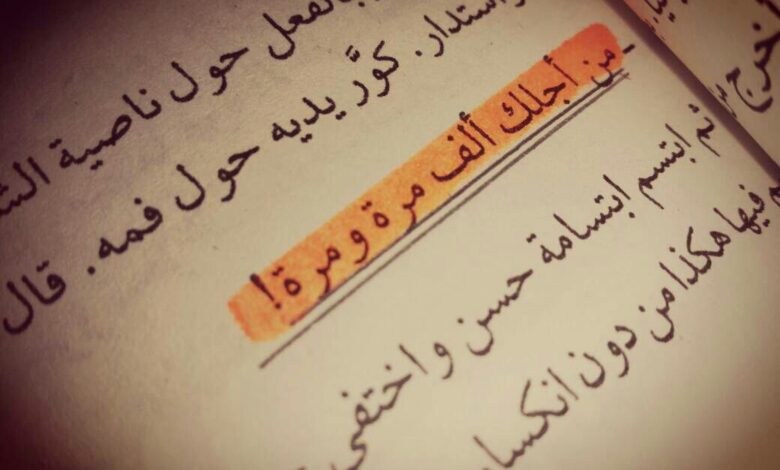 بالفعل حول ناصية
واستدار. كوَّر يديه حول فمه. قال
-من أجلك ألف مرة ومرة!
ثم ابتسم ابتسامة حسن واختفى
فيها هكذا من دون